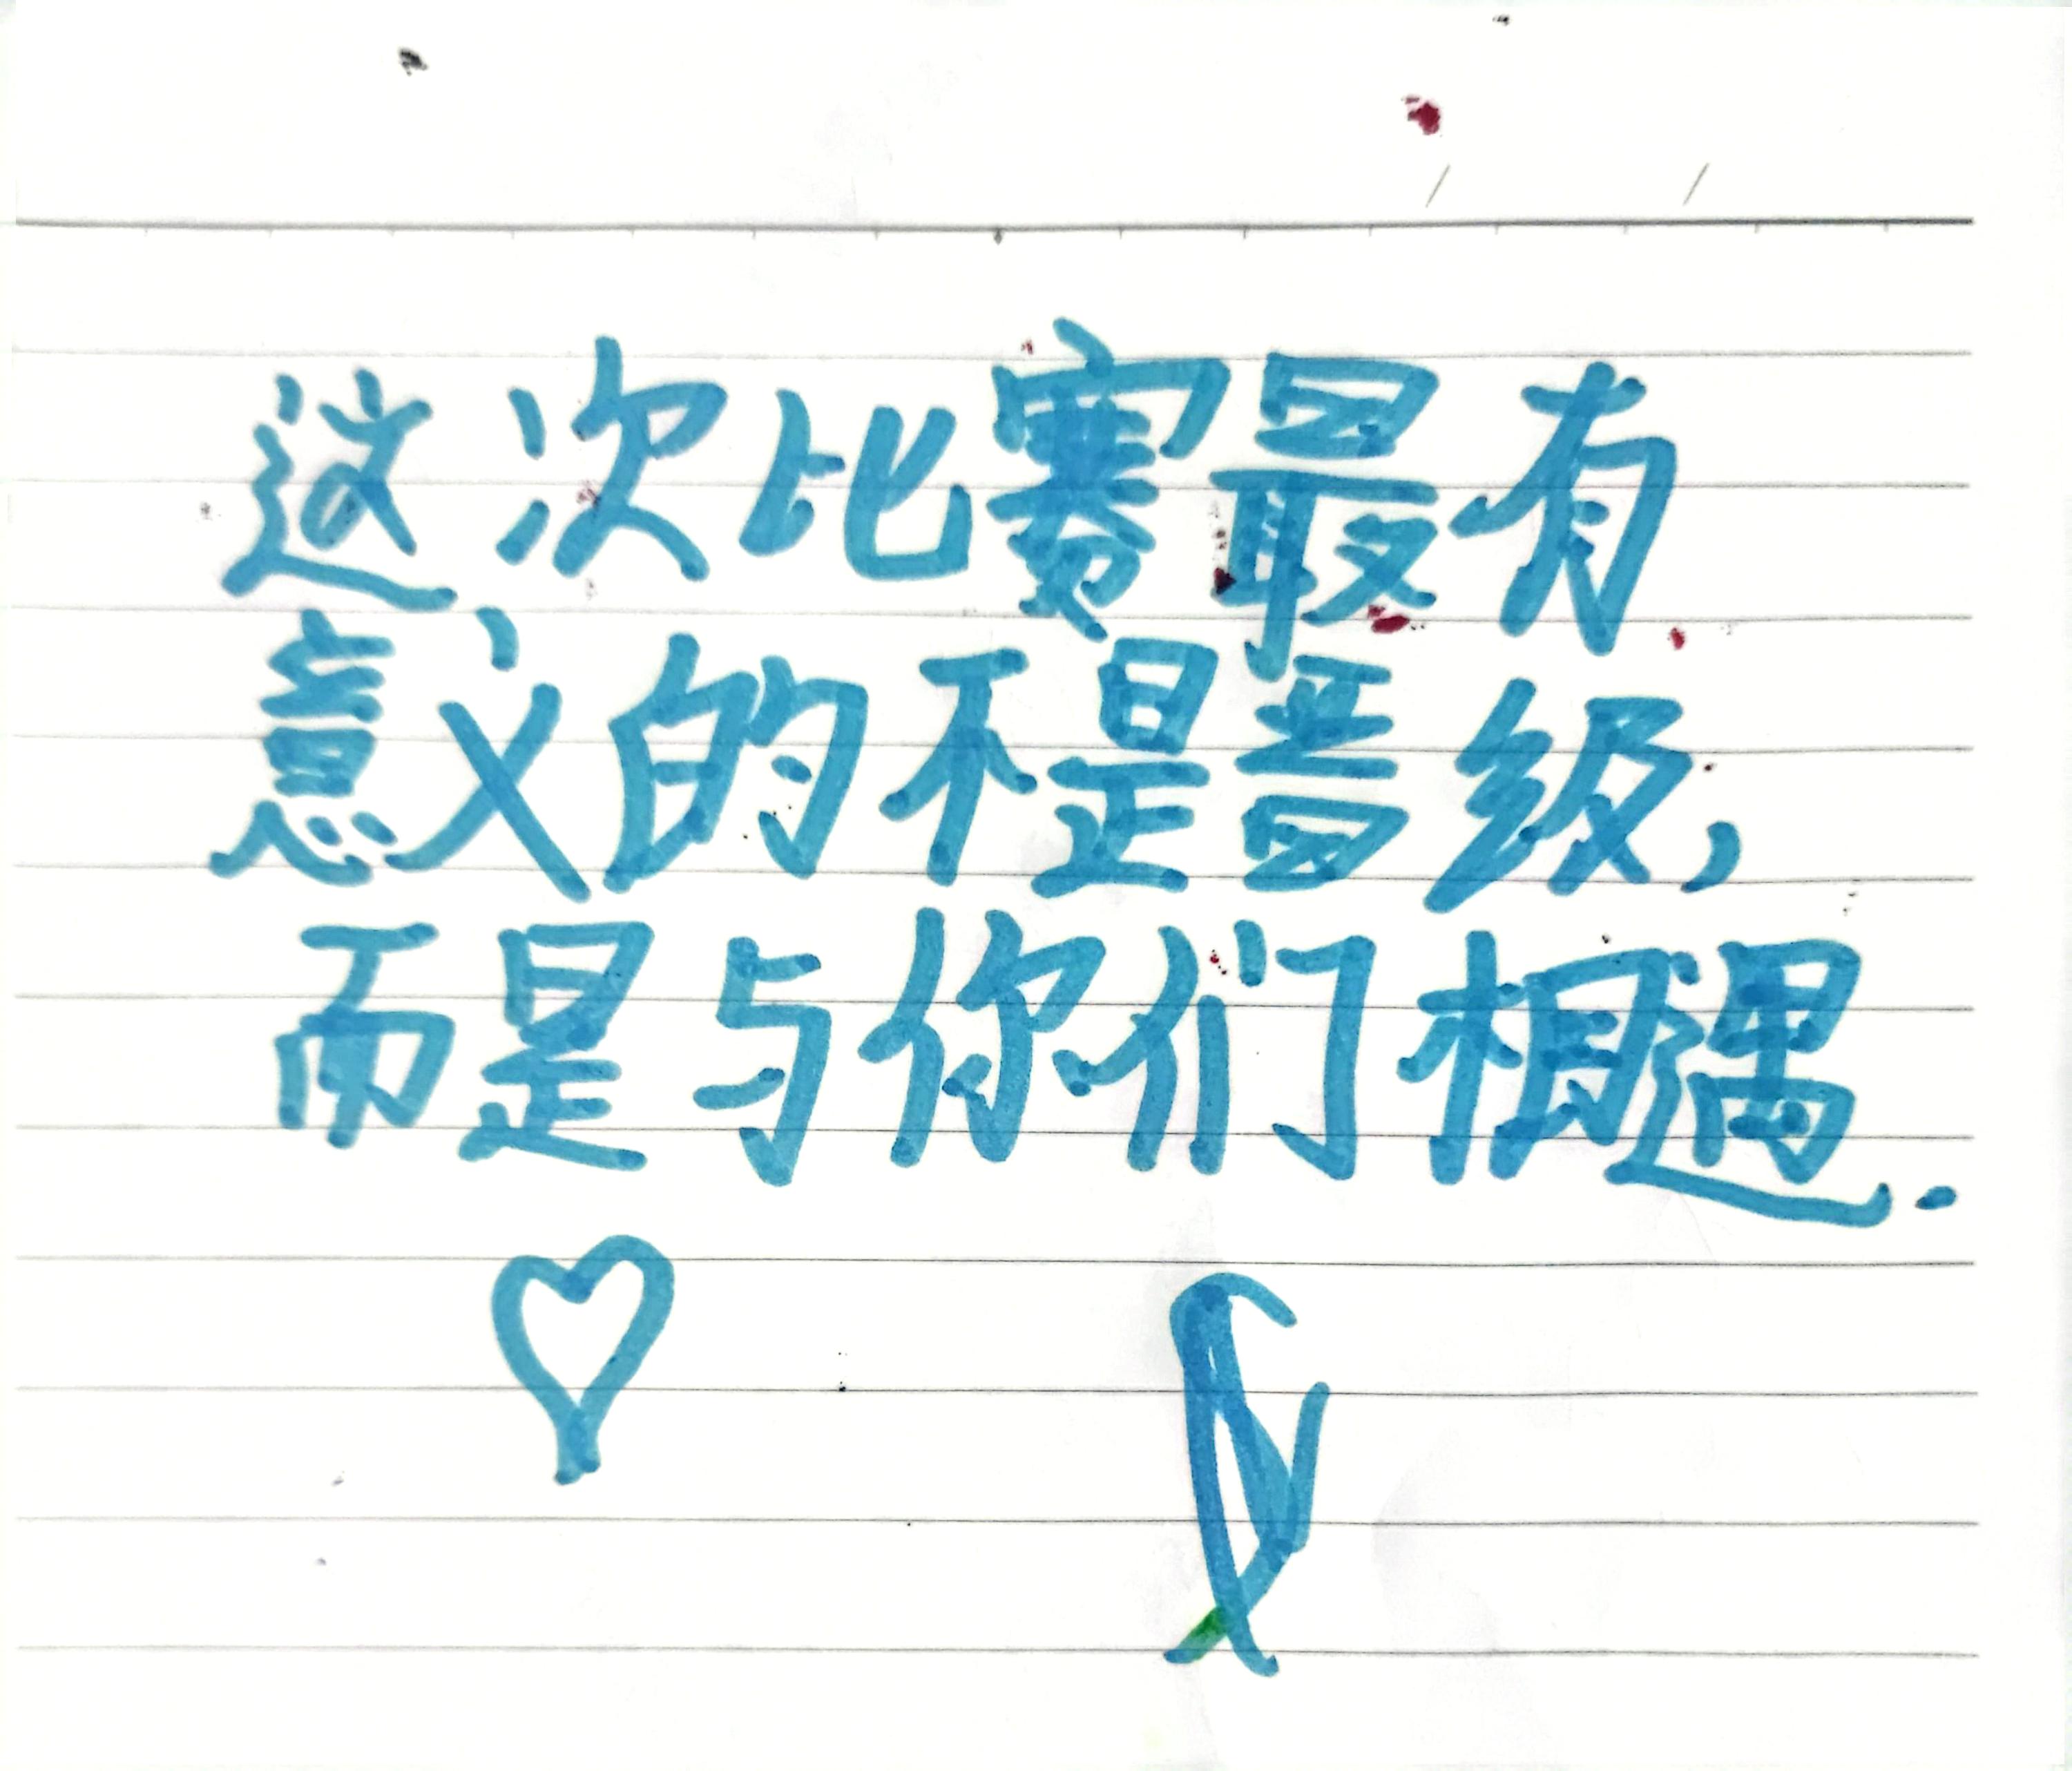 这次比赛最有
意义的不是晋级,
而是与你们相遇.